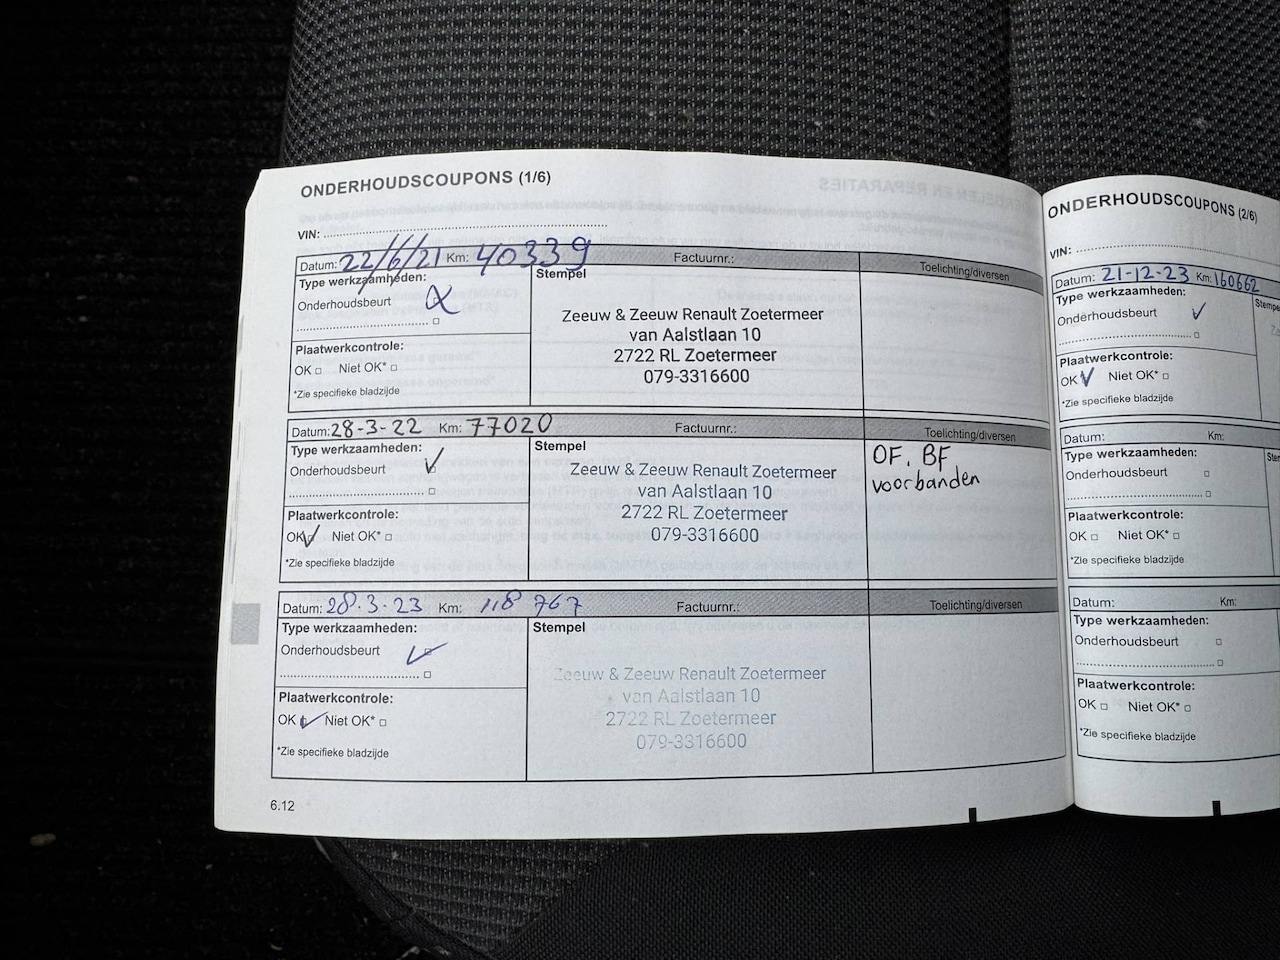 ONDERHOUDSCOUPONS (1/6)
VIN:
Datum: 22/6/21 Km: 40339 Factuurnr.: Toelichting/diversen
Type werkzaamheden:
Onderhoudsbeurt
Stempel
Zeeuw & Zeeuw Renault Zoetermeer
van Aalstlaan 10
2722 RL Zoetermeer
079-3316600
Plaatwerkcontrole:
OK Niet OK*
*Zie specifieke bladzijde
Datum: 28-3-22 Km: 77020 Factuurnr.: Toelichting/diversen
Type werkzaamheden:
Onderhoudsbeurt
Stempel
Zeeuw & Zeeuw Renault Zoetermeer
van Aalstlaan 10
2722 RL Zoetermeer
079-3316600
OF. BF
voorbanden
Plaatwerkcontrole:
OK Niet OK*
*Zie specifieke bladzijde
Datum: 28.3.23 Km: 118 767 Factuurnr.: Toelichting/diversen
Type werkzaamheden:
Onderhoudsbeurt
Stempel
Zeeuw & Zeeuw Renault Zoetermeer
van Aalstlaan 10
2722 RL Zoetermeer
079-3316600
Plaatwerkcontrole:
OK Niet OK*
*Zie specifieke bladzijde
6.12
ONDERHOUDSCOUPONS (2/6)
VIN:
Datum: 21-12-23 Km: 160662
Type werkzaamheden:
Onderhoudsbeurt
Plaatwerkcontrole:
OK Niet OK*
*Zie specifieke bladzijde
Datum: Km:
Type werkzaamheden:
Onderhoudsbeurt
Plaatwerkcontrole:
OK Niet OK*
*Zie specifieke bladzijde
Datum: Km:
Type werkzaamheden:
Onderhoudsbeurt
Plaatwerkcontrole:
OK Niet OK*
*Zie specifieke bladzijde